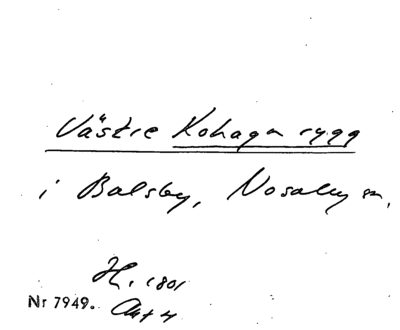 Västre Kohagen rygg
i Balsby, Nosaby sn.
H. 1801
Nr 7949. Akt 4